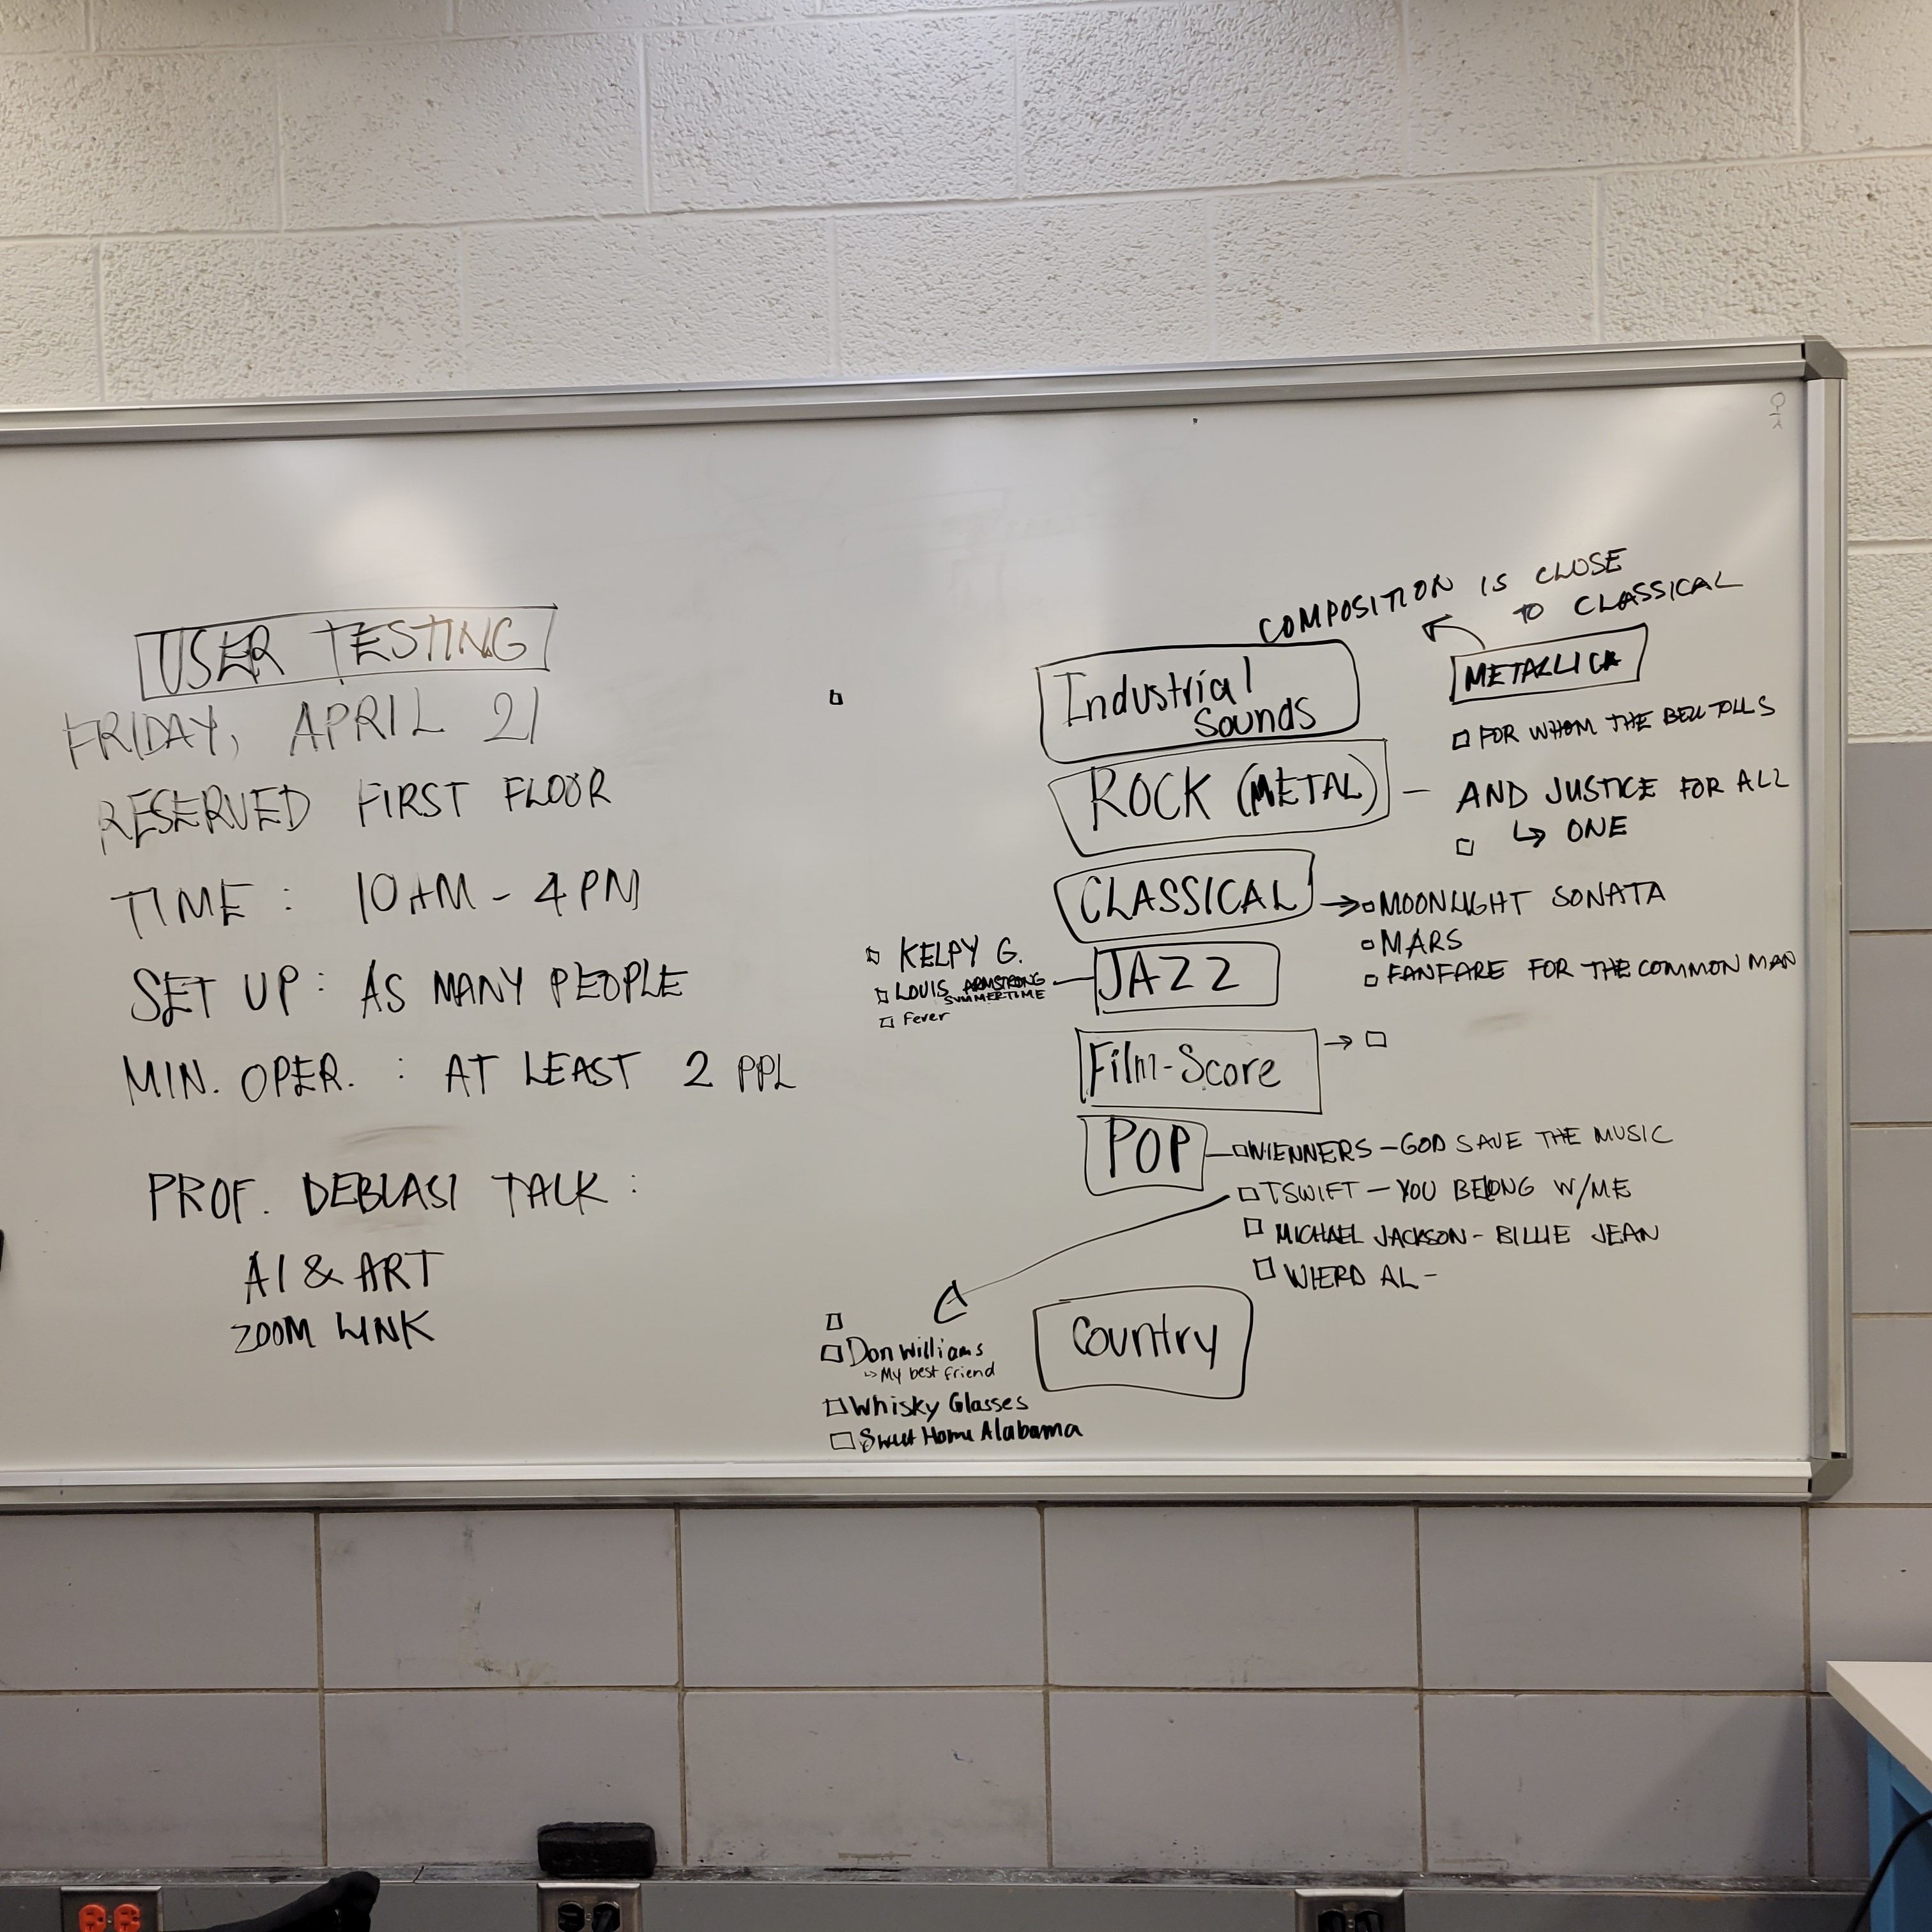 USER TESTING
FRIDAY, APRIL 21
RESERVED FIRST FLOOR
TIME : 10 AM - 4 PM
SET UP : AS MANY PEOPLE
MIN. OPER. : AT LEAST 2 PPL
PROF. DEBLASI TALK :
AI & ART
ZOOM LINK
COMPOSITION IS CLOSE
TO CLASSICAL
METALLICA
Industrial
Sounds
FOR WHOM THE BELL TOLLS
ROCK (METAL) — AND JUSTICE FOR ALL
↳ ONE
CLASSICAL →
MOONLIGHT SONATA
MARS
FANFARE FOR THE COMMON MAN
JAZZ
KELPY G.
LOUIS ARMSTRONG
SUMMERTIME
Fever
Film-Score →
POP
WIENNERS - GOD SAVE THE MUSIC
TSWIFT - YOU BELONG W/ME
MICHAEL JACKSON - BILLIE JEAN
WIERD AL -
Country
Don Williams
↳ My best friend
Whisky Glasses
Sweet Home Alabama